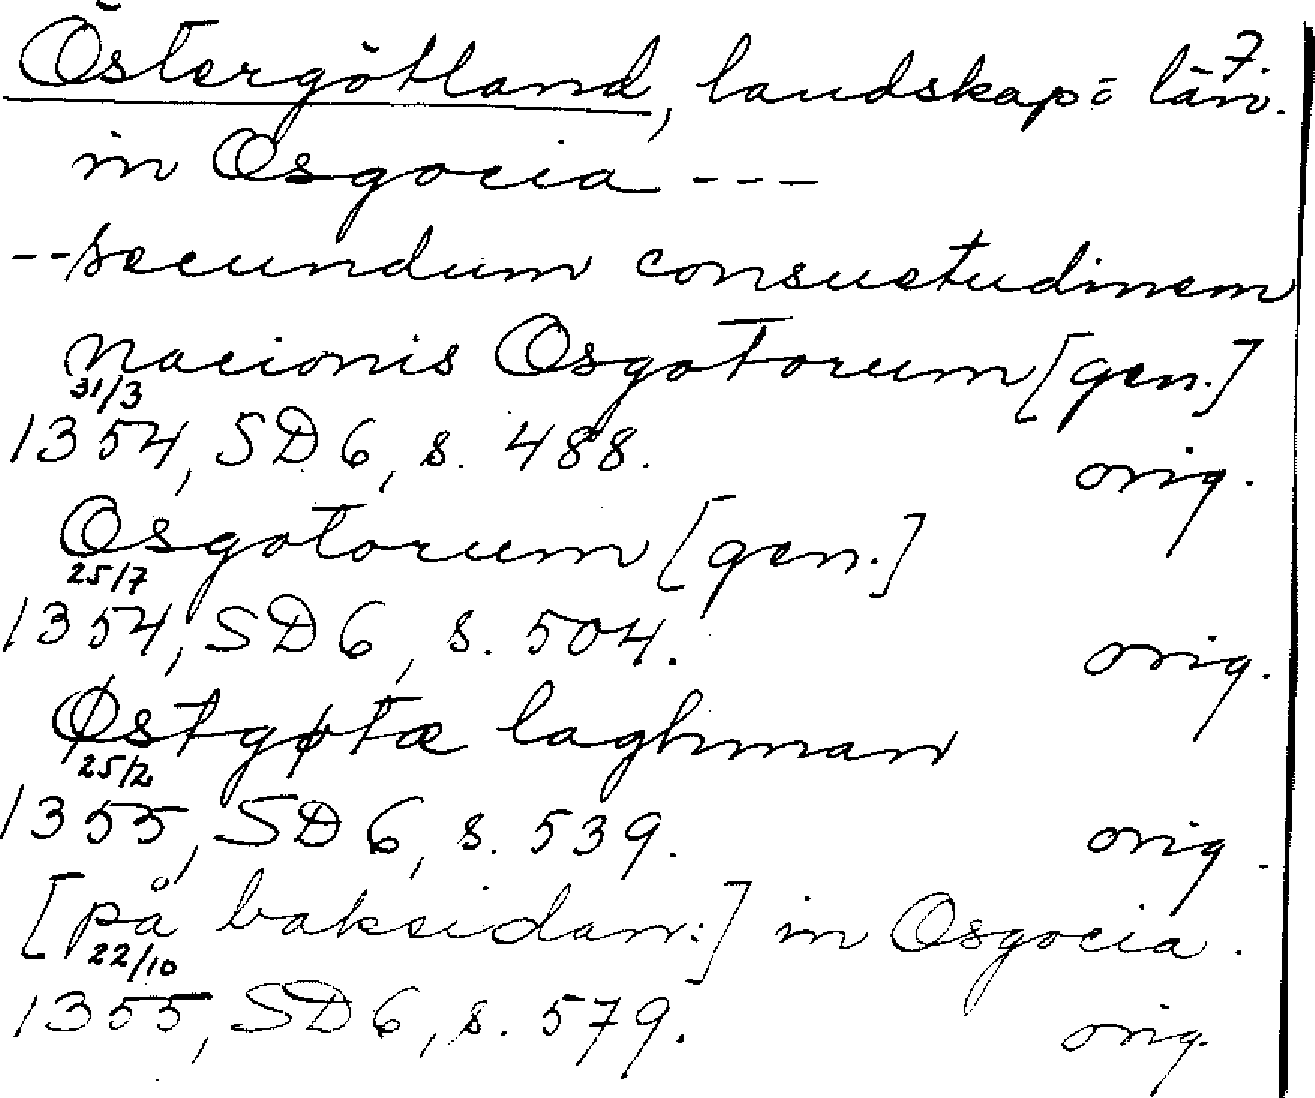 7.
Östergötland, landskap o län.
in Osgocia ---
--secundum consuetudinem
nacionis Osgotorum [gen.]
31/3
1354, SD 6, s. 488. orig.
Osgotorum [gen.]
25/7
1354, SD 6, s. 504. orig.
Østgøtæ laghman
25/2
1355, SD 6, s. 539. orig.
[på baksidan:] in Osgocia.
22/10
1355, SD 6, s. 579. orig.